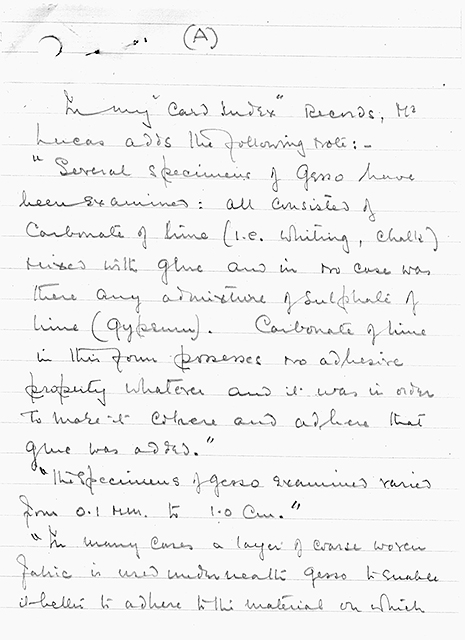 (A)
In my "Card Index" Records, Mr
Lucas adds the following note:-
"Several specimens of Gesso have
been examined: all consisted of
Carbonate of lime (i.e. whiting, chalk)
mixed with glue and in no case was
there any admixture of Sulphate of
lime (Gypsum). Carbonate of lime
in this form possesses no adhesive
property whatever and it was in order
to make it cohere and adhere that
glue was added."
"The specimens of gesso examined varied
from 0.1 MM. to 1.0 Cm."
"In many cases a layer of coarse woven
fabric is used underneath gesso to enable
it better to adhere to the material on which